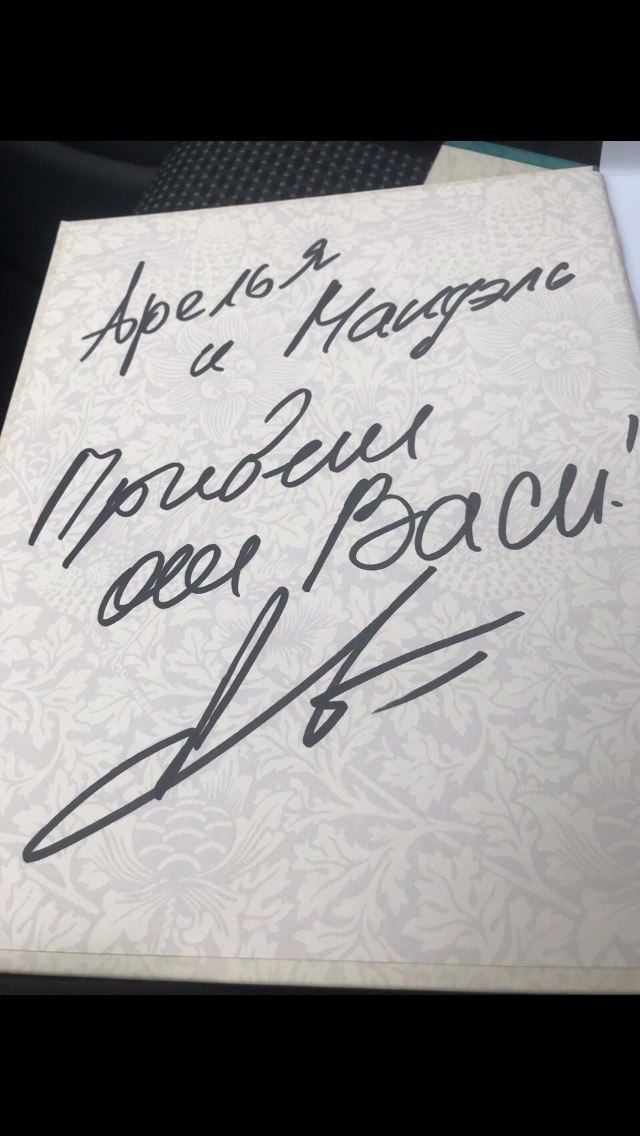 Арелья
и Мандэль
Привет
от Васи!